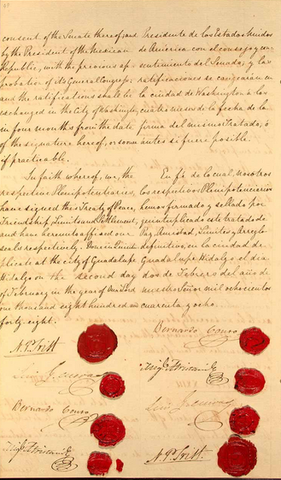 consent of the Senate thereof, and
by the President of the Mexican
Republic, with the previous ap-
probation of its General Congress,
and the ratifications shall be
exchanged in the City of Washington,
in four months from the date
of the signature hereof, or sooner
if practicable.
In faith whereof, we, the
respective Plenipotentiaries,
have signed this Treaty of Peace,
Friendship, Limits and Settlement,
and have hereunto affixed our
seals respectively. Done in Quintu-
plicate at the city of Guadalupe
Hidalgo on the second day
of February in the year of our Lord
one thousand eight hundred and
forty-eight.
Presidente de los Estados Unidos
de America, con el consejo y con-
sentimiento del Senado; y las
ratificaciones se cangearán en
la ciudad de Washington a los
cuatro meses de la fecha de la
firma del mismo Tratado, ó
antes si fuere posible.
En fé de lo cual, nosotros
los respectivos Plenipotenciarios
hemos firmado y sellado por
quintuplicado este tratado de
Paz, Amistad, Limites y Arreglo
definitivo, en la ciudad de
Guadalupe Hidalgo el dia
dos de Febrero del año de
mil ochocientos
cuarenta y ocho
Bernardo Couto
N. P. Trist
Migl. Atristain
Luis G. Cuevas
Luis G. Cuevas
Bernardo Couto
Migl. Atristain
N. P. Trist